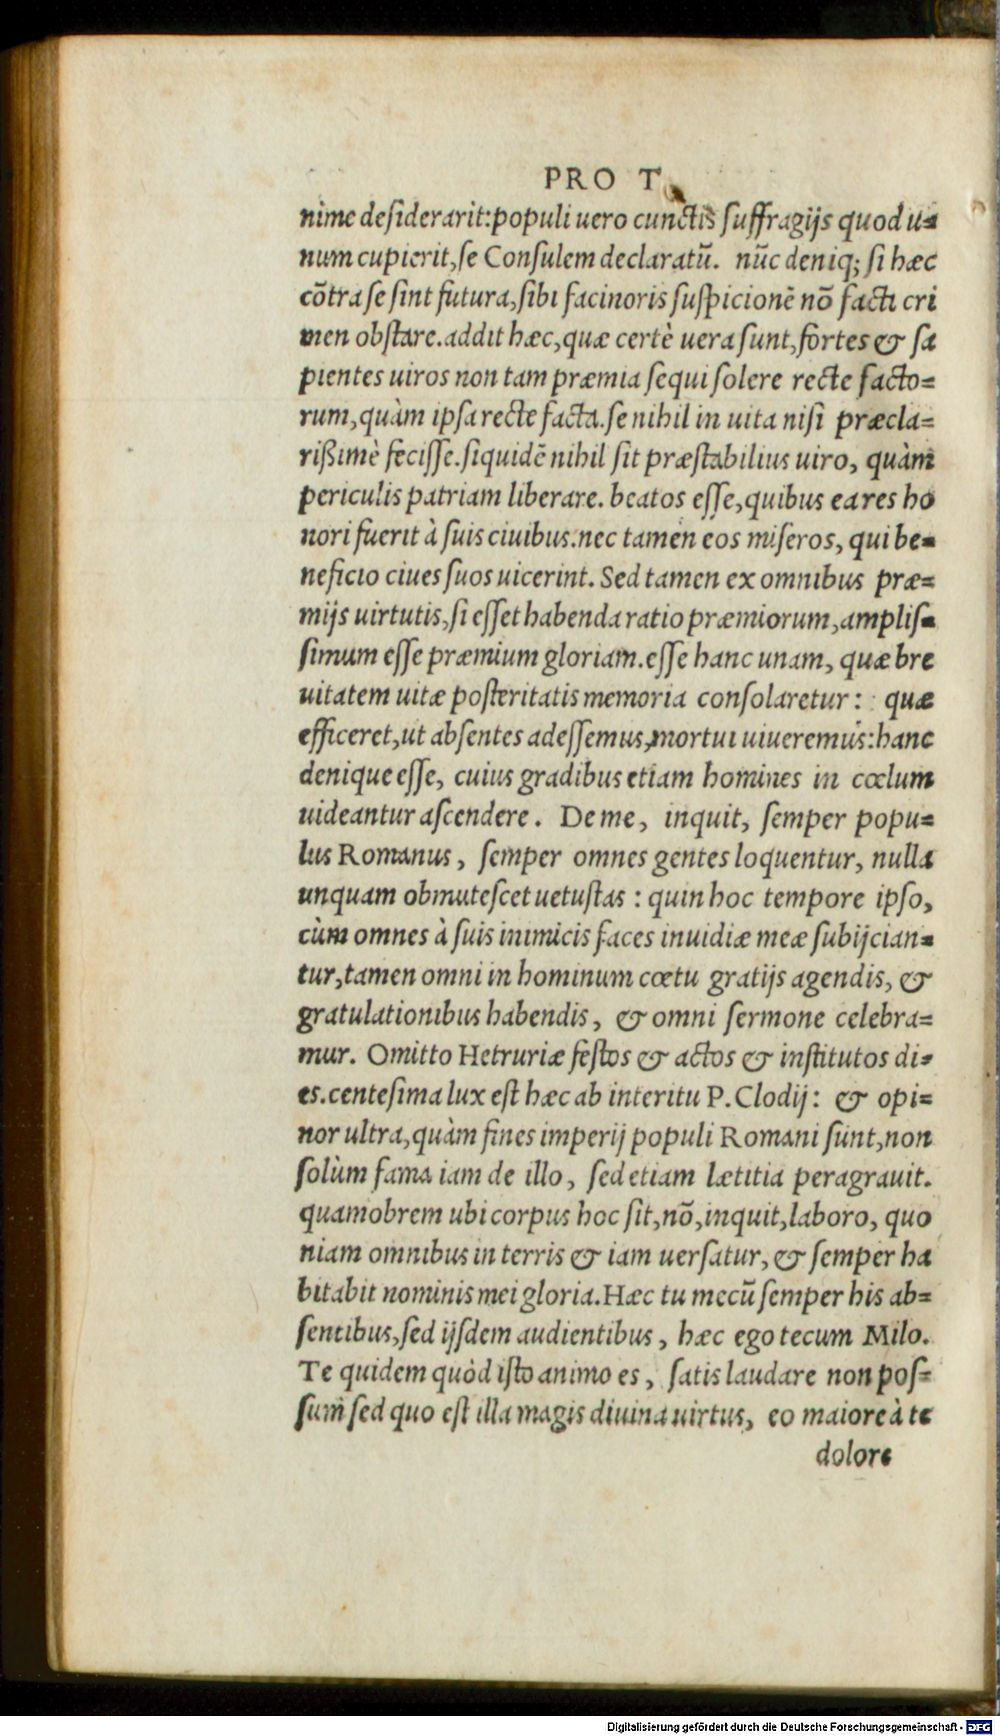 PRO T
nime deſiderarit:populi uero cunctis ſuffragijs quod u=
num cupierit,ſe Conſulem declaratũ. nũc deniq; ſi hæc
cõtra ſe ſint futura,ſibi facinoris ſuſpicionẽ nõ facti cri
men obſtare.addit hæc,quæ certè uera ſunt,fortes & ſa
pientes uiros non tam præmia ſequi ſolere recte facto=
rum,quàm ipſa recte facta.ſe nihil in uita niſi præcla=
rißimè feciſſe.ſiquidẽ nihil ſit præſtabilius uiro, quàm
periculis patriam liberare. beatos eſſe,quibus ea res ho
nori fuerit à ſuis ciuibus.nec tamen eos miſeros, qui be=
neficio ciues ſuos uicerint. Sed tamen ex omnibus præ=
mijs uirtutis,ſi eſſet habenda ratio præmiorum,ampliſ=
ſimum eſſe præmium gloriam.eſſe hanc unam, quæ bre
uitatem uitæ poſteritatis memoria conſolaretur: quæ
efficeret,ut abſentes adeſſemus,mortui uiueremus:hanc
denique eſſe, cuius gradibus etiam homines in cœlum
uideantur aſcendere. De me, inquit, ſemper popu=
lus Romanus, ſemper omnes gentes loquentur, nulla
unquam obmuteſcet uetuſtas : quin hoc tempore ipſo,
cùm omnes à ſuis inimicis faces inuidiæ meæ ſubijcian=
tur,tamen omni in hominum cœtu gratijs agendis, &
gratulationibus habendis, & omni ſermone celebra=
mur. Omitto Hetruriæ feſtos & actos & inſtitutos di=
es.centeſima lux eſt hæc ab interitu P. Clodij: & opi=
nor ultra,quàm fines imperij populi Romani ſunt,non
ſolùm fama iam de illo, ſed etiam lætitia peragrauit.
quamobrem ubi corpus hoc ſit,nõ,inquit,laboro, quo
niam omnibus in terris & iam uerſatur, & ſemper ha
bitabit nominis mei gloria.Hæc tu mecũ ſemper his ab=
ſentibus,ſed ijſdem audientibus, hæc ego tecum Milo.
Te quidem quòd iſto animo es, ſatis laudare non poſ=
ſum ſed quo eſt illa magis diuina uirtus, eo maiore à te
dolore
Digitalisierung gefördert durch die Deutsche Forschungsgemeinschaft - DFG